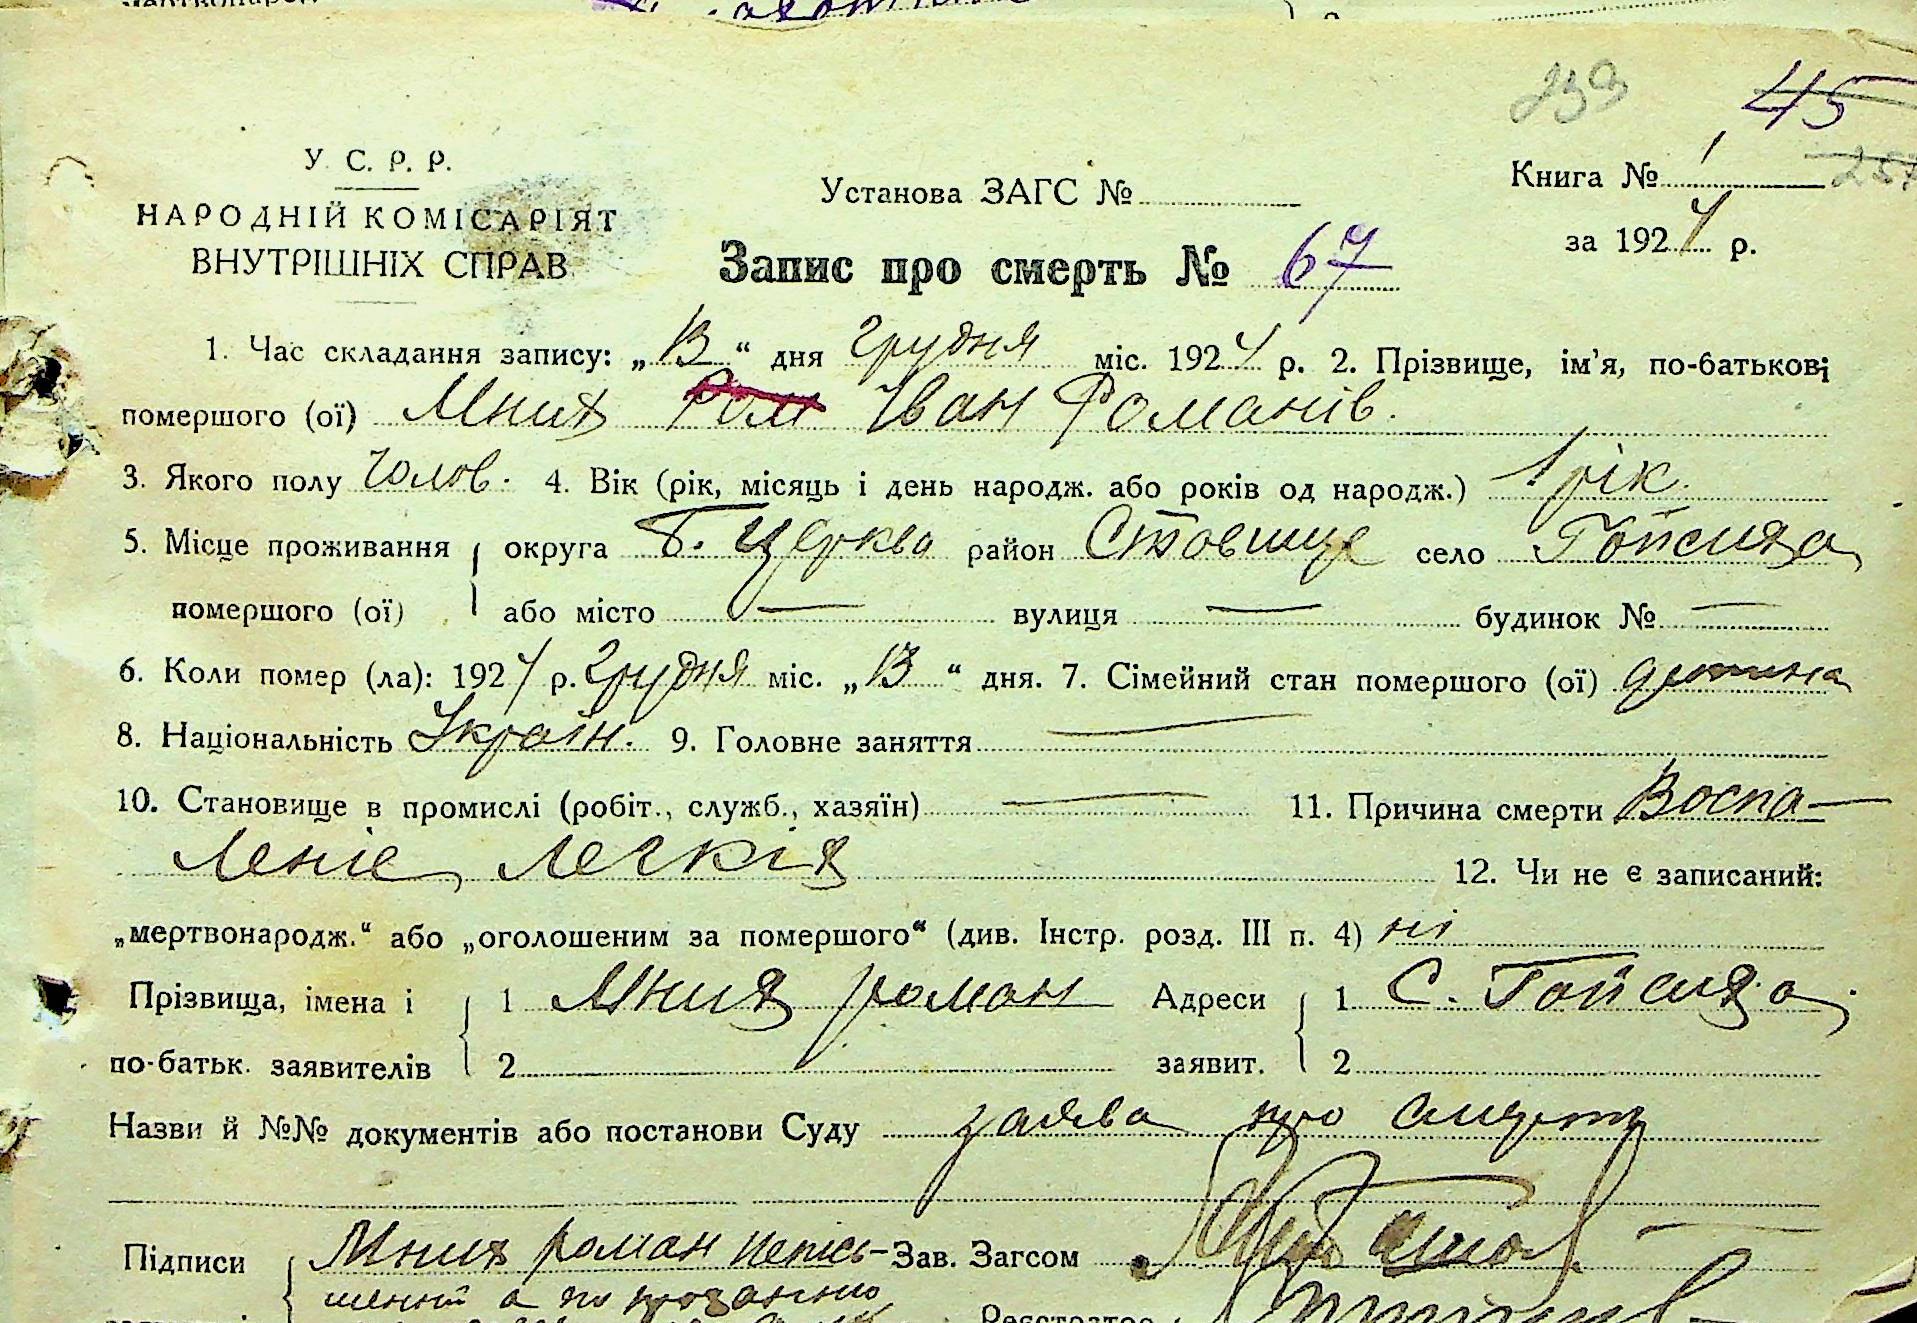 239 45
У. С. Р. Р.
НАРОДНІЙ КОМІСАРІЯТ
ВНУТРІШНІХ СПРАВ
Установа ЗАГС №
Книга № 1 257
за 1924 р.
Запис про смерть № 67
1. Час складання запису: „13“ дня Грудня міс. 1924 р. 2. Прізвище, ім'я, по-батькові
помершого (ої) Мних Ром Іван Романів.
3. Якого полу чолов. 4. Вік (рік, місяць і день народж. або років од народж.) 1 рік.
5. Місце проживання округа Б. Церква район Ставище село Гойсиха
помершого (ої) або місто — вулиця — будинок № —
6. Коли помер (ла): 1924 р. Грудня міс. „13“ дня. 7. Сімейний стан помершого (ої) детина
8. Національність Україн. 9. Головне заняття —
10. Становище в промислі (робіт., служб., хазяїн) — 11. Причина смерти Воспа-
леніе легкіх 12. Чи не є записаний:
„мертвонародж.“ або „оголошеним за помершого“ (див. Інстр. розд. III п. 4) ні
Прізвища, імена і 1 Мних Роман Адреси 1 С. Гойсиха
по-батьк. заявителів 2 заявит. 2
Назви й №№ документів або постанови Суду заява про смерть
Підписи Мних Роман непись- Зав. Загсом
менний а по проханню
Реєстратор